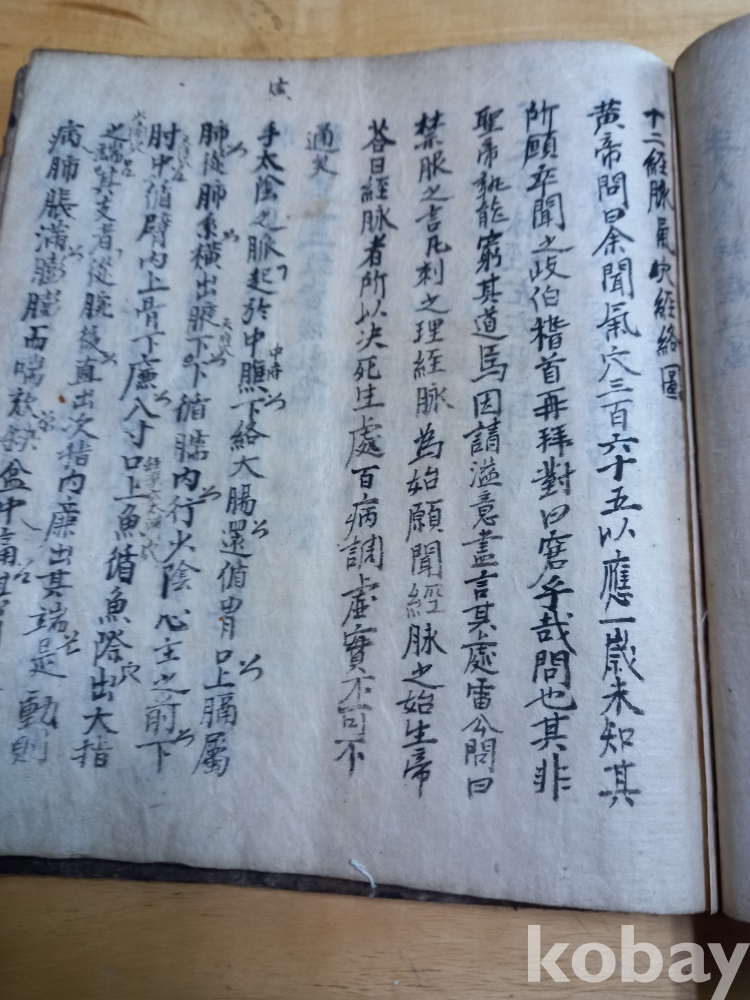 十二經脉氣穴經絡圖
黃帝問曰余聞氣穴三百六十五以應一歲未知其
所願卒聞之岐伯稽首再拜對曰窘乎哉問也其非
聖帝孰能窮其道焉因請溢意盡言其處雷公問曰
禁服之言凡刺之理經脉為始願聞經脉之始生帝
荅曰經脉者所以决死生處百病調虛實不可不
通矣
手太陰之脉起於中膲下絡大腸還循胃口上膈屬
肺從肺系橫出腋下下循臑内行少陰心主之前下
肘中循臂内上骨下廉入寸口上魚循魚際出大指
之端其支者從腕後直出次指内廉出其端是動則
病肺脹滿膨膨而喘欬缺盆中痛
中府
kobay